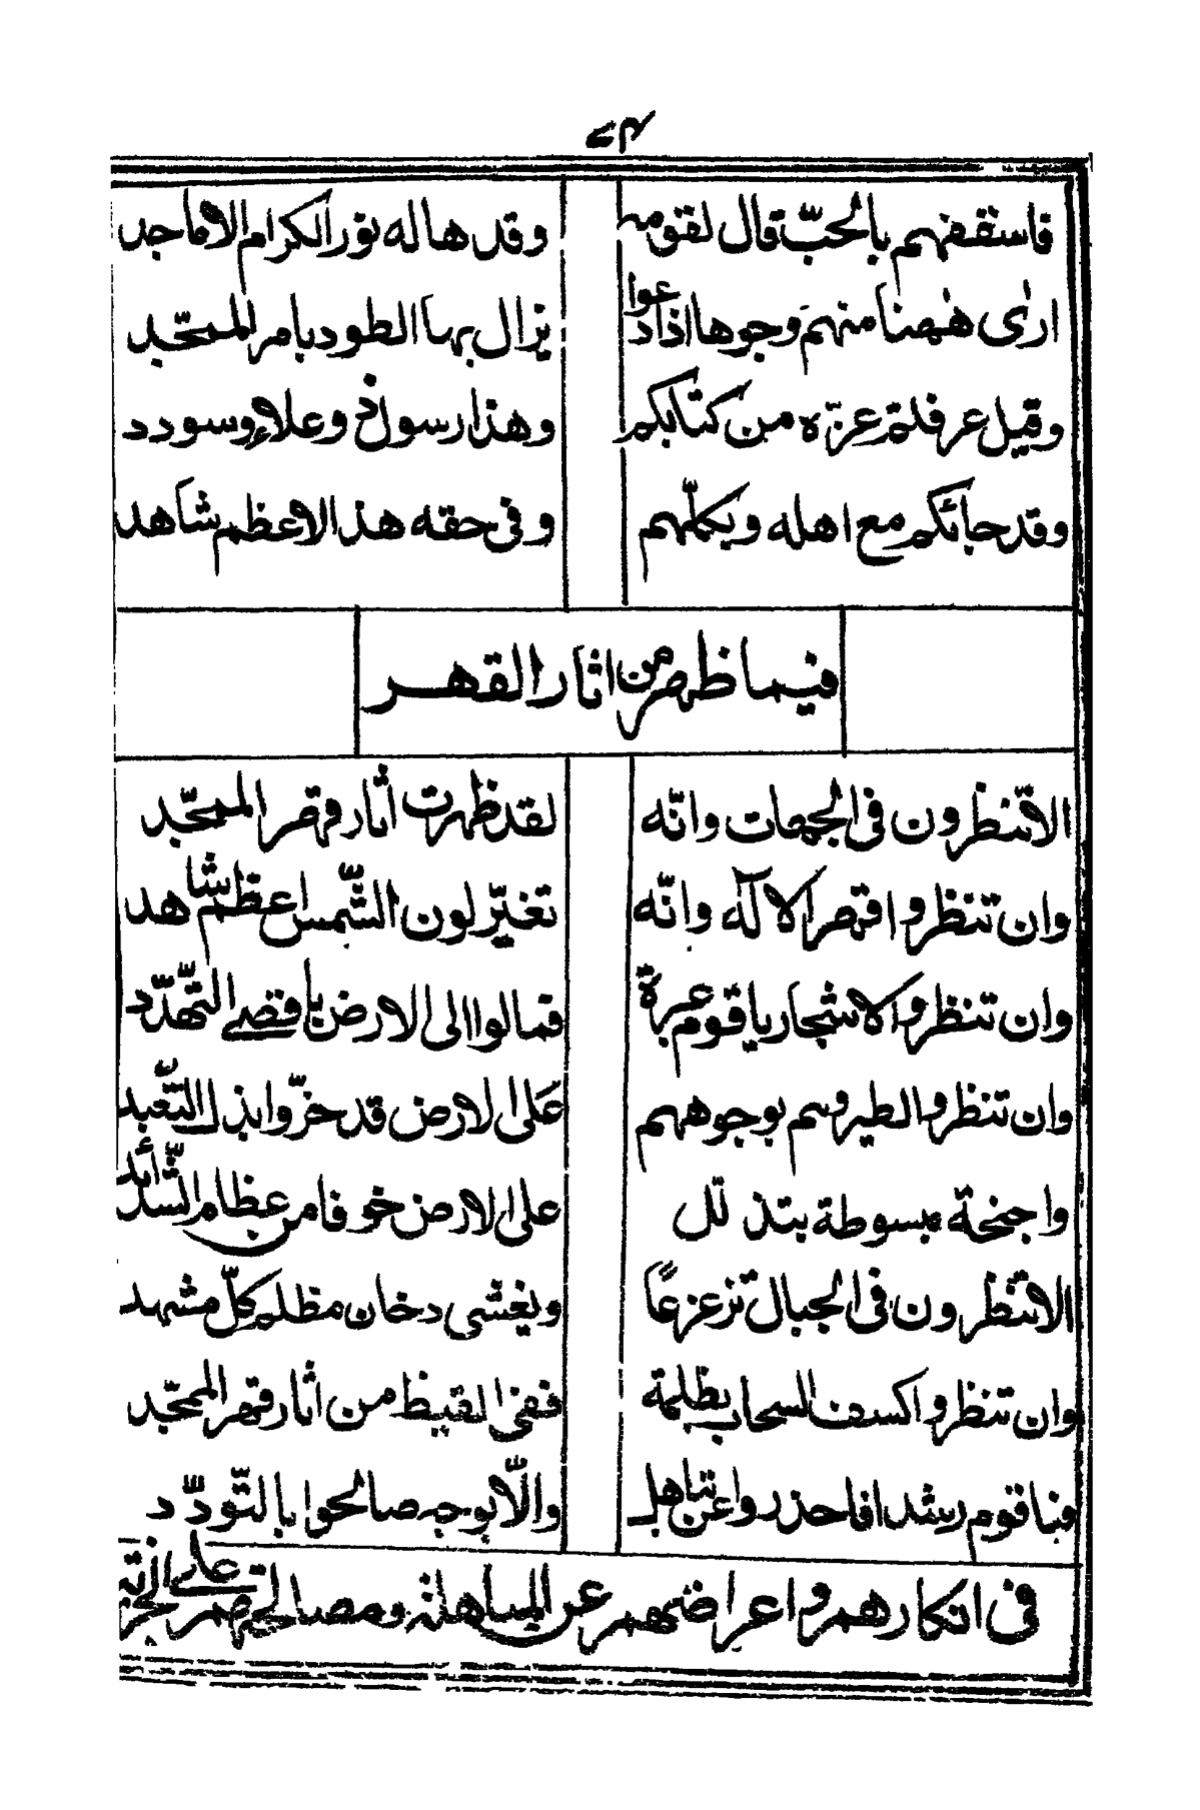 ٧٣
فاستقفهم بالحبّ قال لقومه وقد هاله نور الكرام الاماجد
ارٰى هٰهنا منهم وجوها اذا دعوا يزال بها الطود بامر الممحّد
وقيل عرفلتم عزّه من كتابكم وهذا رسول ذو علاء وسودد
وقد جائكم مع اهله وبكلّهم وفى حقه هذ الاعظم شاهد
فيما ظهر من اثار القهر
الا تنظرون فى الجهات وانّه لقد ظهرت أثار قهر الممحّد
وان تنظروا قهر الاله وانّه تغيّر لون الشّمس اعظم شاهد
وان تنظروا الاشجار يا قوم عبرة فمالوا الى الارض باقصے التّهدّد
وان تنظروا الطيروهم بوجوههم على الارض قد خرّوا بذل التّعبد
واجنحة مبسوطة بتذلّل على الارض خوفا من عظام الشّدائد
الا تنظرون فى الجبال تزعزعًا ويغشى دخان مظلم كلّ مشهد
وان تنظروا كسف السحاب بظلمة ففى القيظ من أثار قهر الممحّد
فيا قوم رشدا فاحذروا عن تباهل والّا بوجه صالحوا بالتّودّد
فى انكارهم واعراضهم عن المباهلة ومصالحتهم علے الجزية